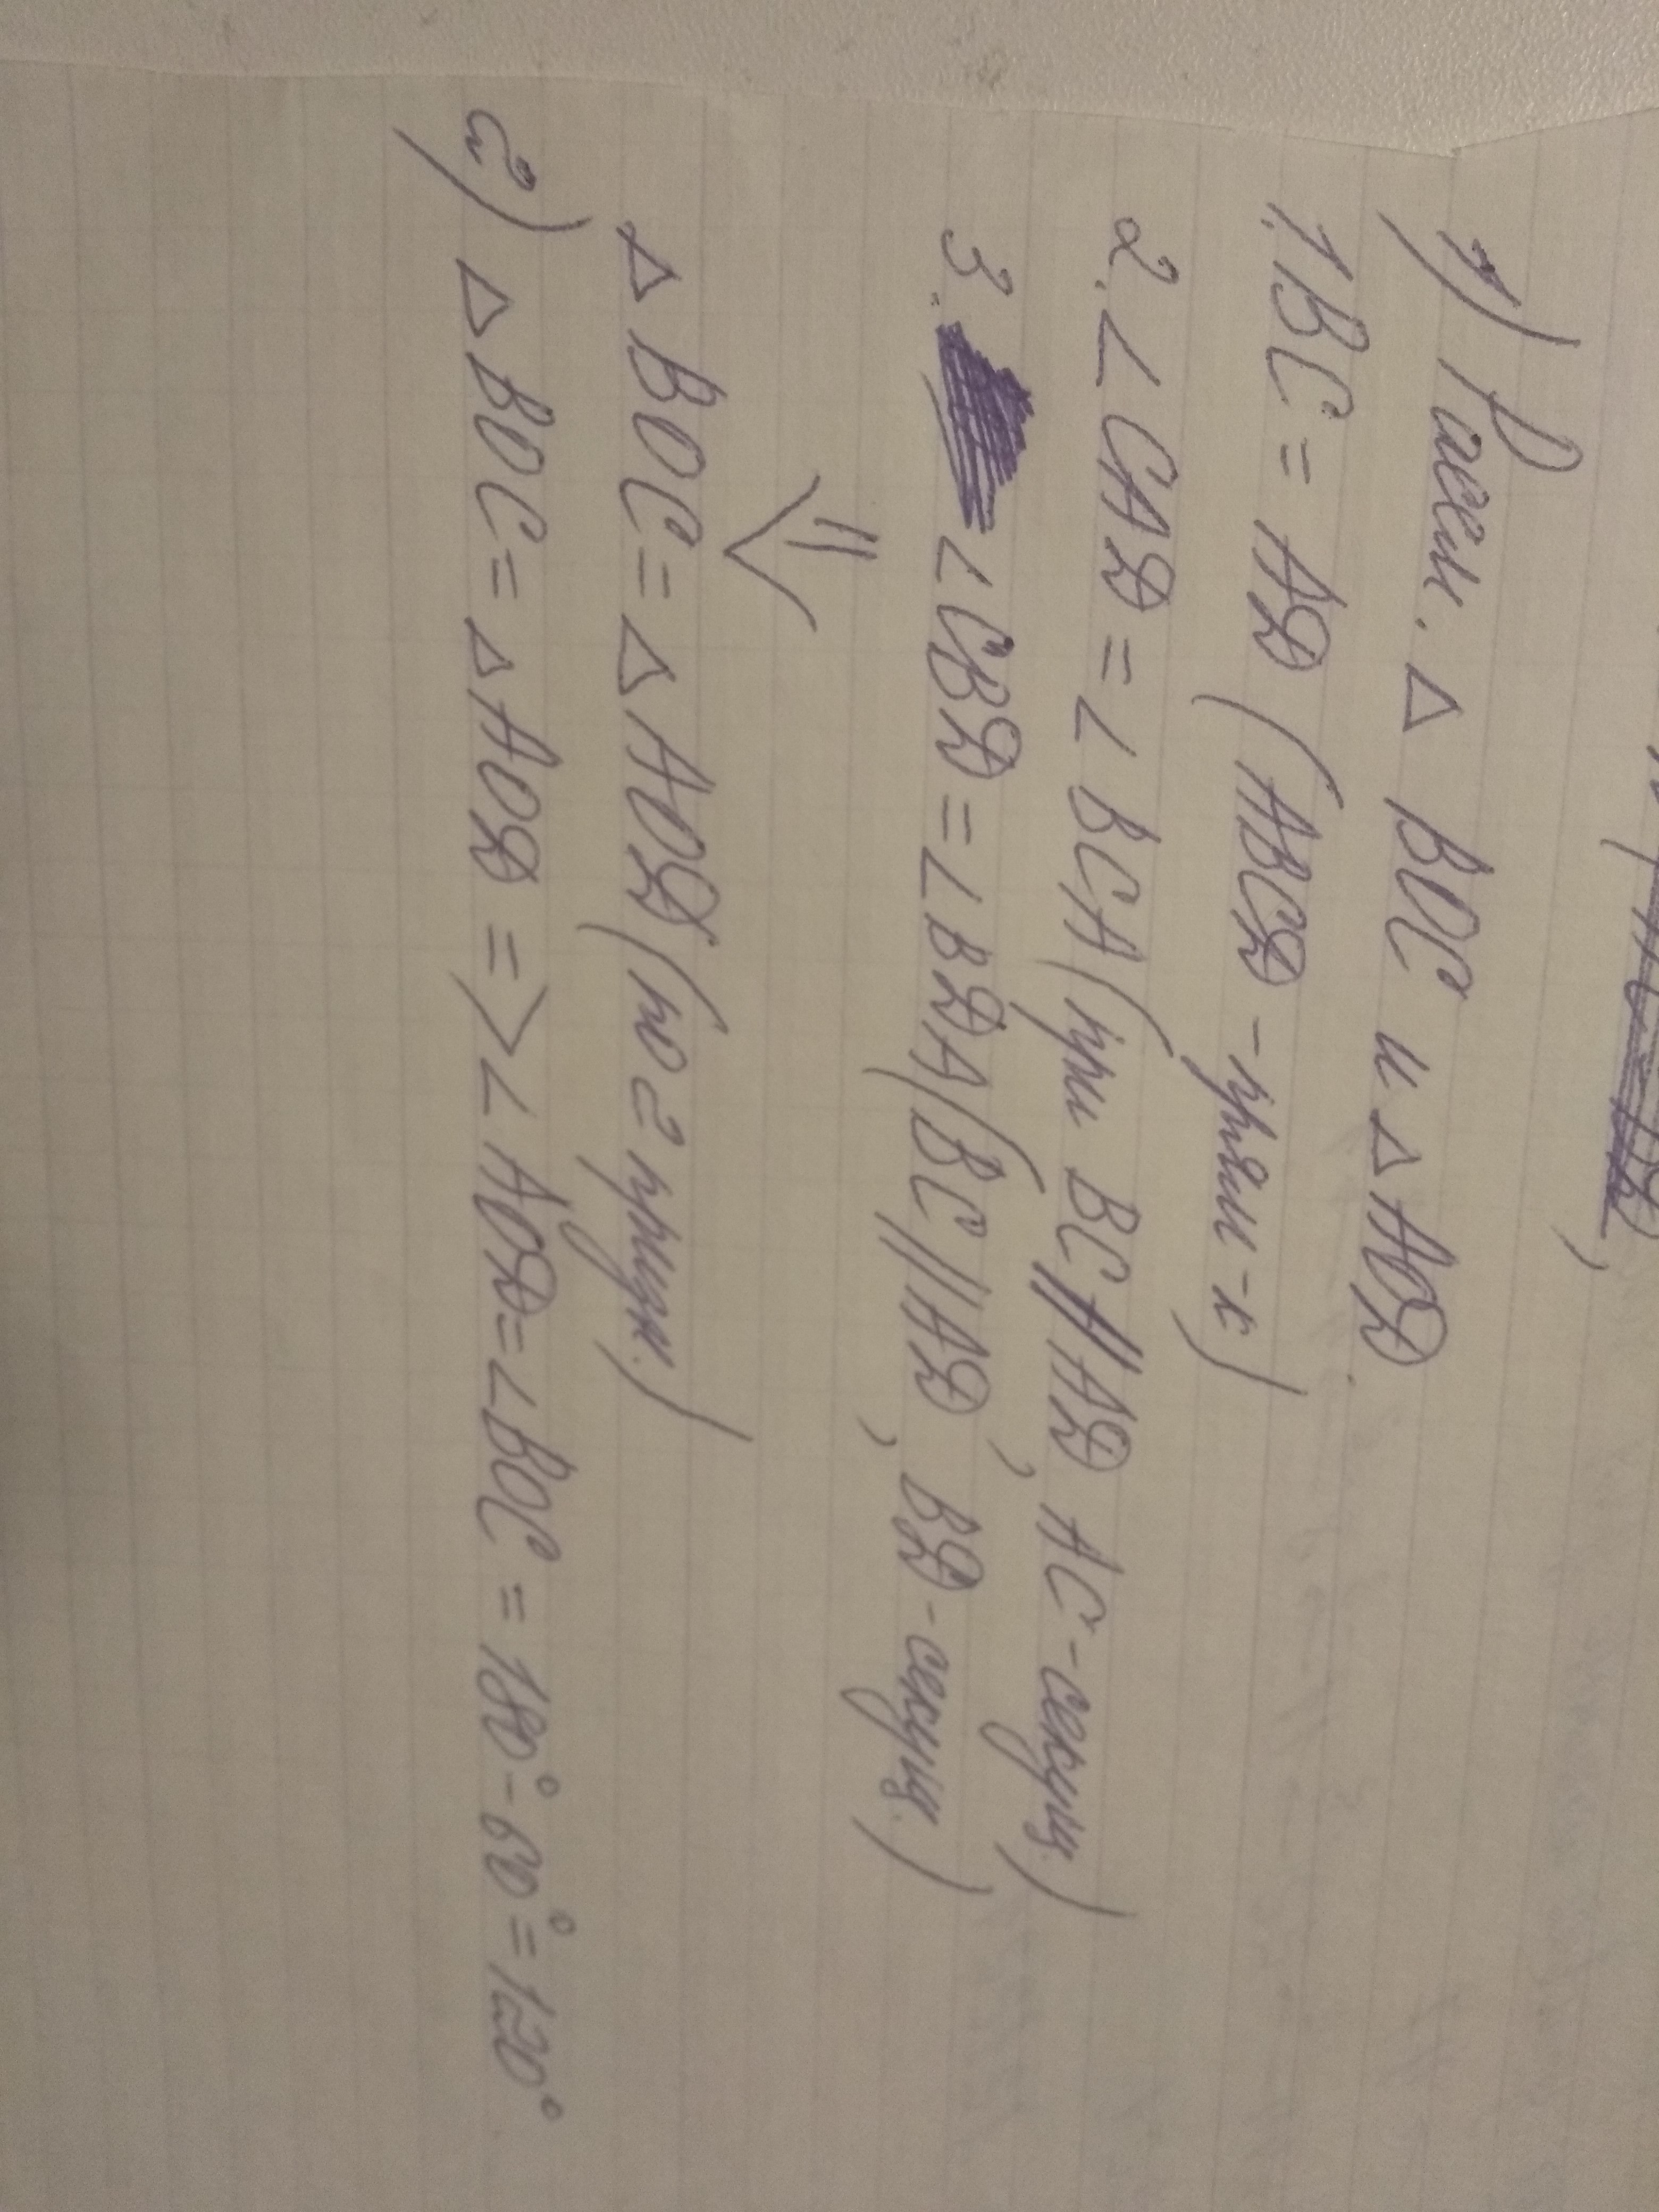 1) Рассм. △ BOC и △ AOД.
1. BC = AД (ABCД - прям-к)
2. ∠ CAД = ∠ BCA (при BC || AД, AC - секущ.)
3. ∠ CBД = ∠ BДA (BC || AД, BД - секущ.)
⇓
△ BOC = △ AOД (по 2 призн.)
2) △ BOC = △ AOД => ∠ AOД = ∠ BOC = 180° - 60° = 120°